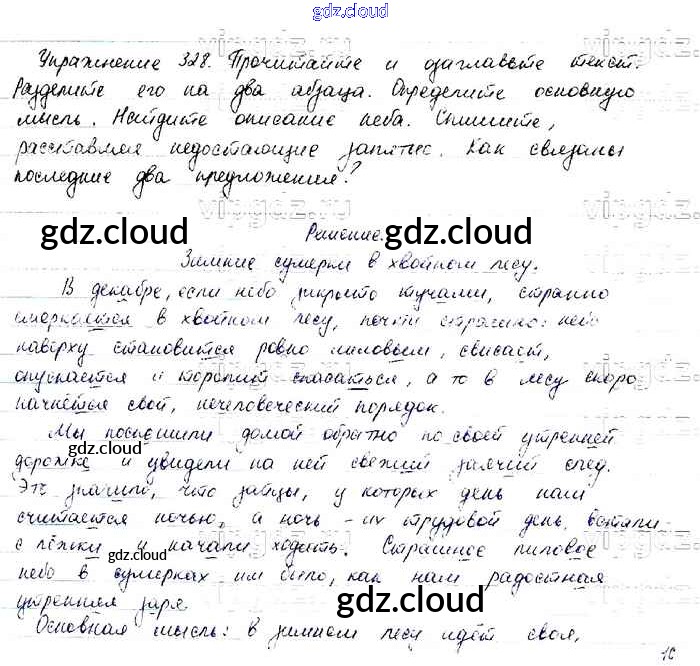 gdz.cloud
Упражнение 328. Прочитайте и озаглавьте текст.
Разделите его на два абзаца. Определите основную
мысль. Найдите описание неба. Спишите,
расставляя недостающие запятые. Как связаны
последние два предложения?
gdz.cloud gdz.cloud
Решение.
Зимние сумерки в хвойном лесу.
В декабре, если небо закрыто тучами, странно
смеркается в хвойном лесу, почти страшно: небо
наверху становится ровно лиловым, свисает,
опускается и торопит спасаться, а то в лесу скоро
начнётся свой, нечеловеческий порядок.
Мы поспешили домой обратно по своей утренней
gdz.cloud
дорожке и увидели на ней свежий заячий след.
Это значило, что зайцы, у которых день наш
считается ночью, а ночь - их трудовой день, встали
с лёжки и начали ходить. Страшное лиловое
gdz.cloud
небо в сумерках им было, как нам радостная
утренняя заря.
gdz.cloud
Основная мысль: в зимнем лесу идёт своя,